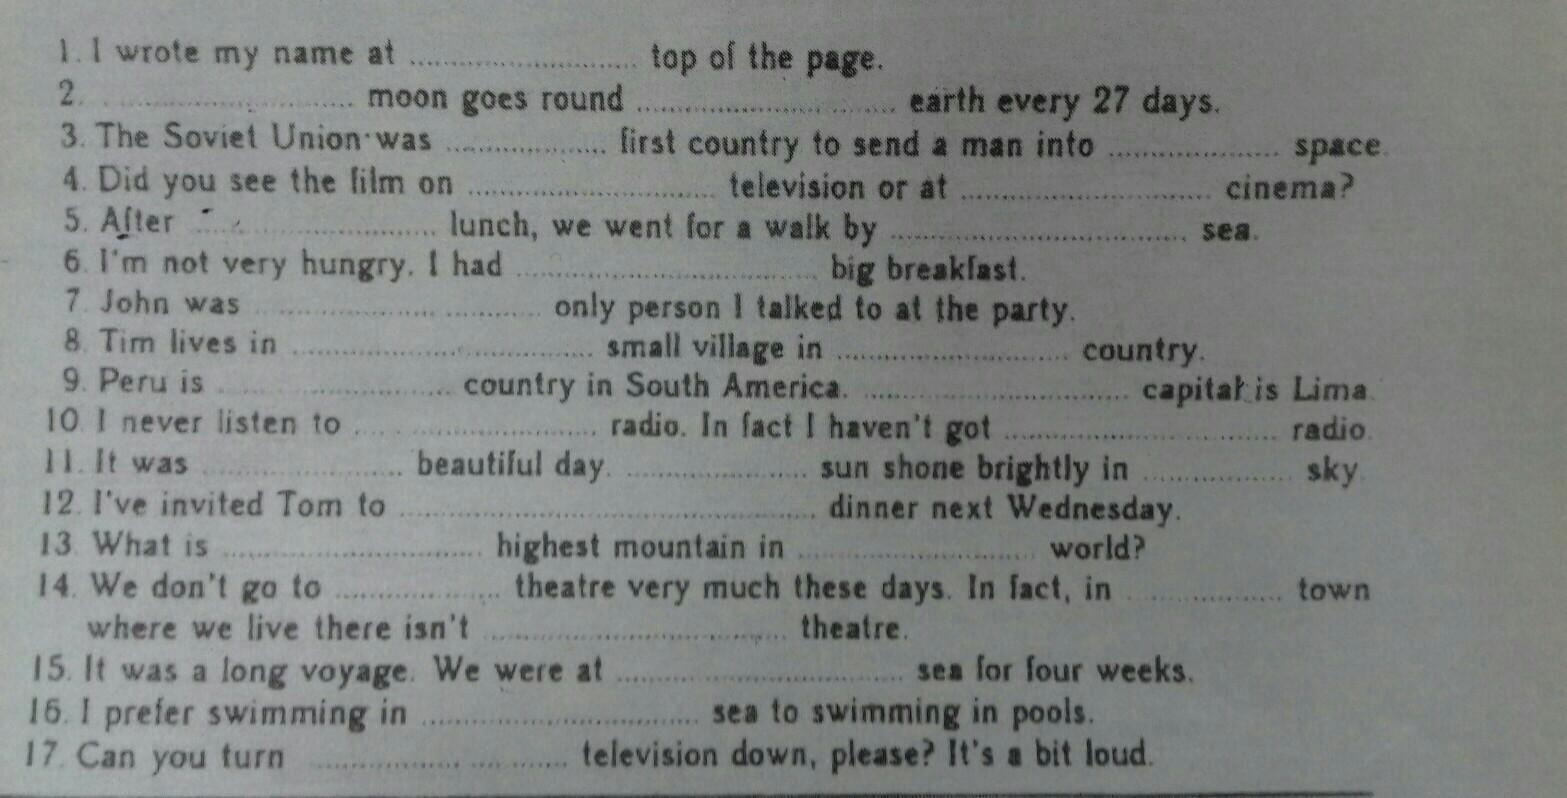 1. I wrote my name at ........................ top of the page.
2. ........................ moon goes round ........................ earth every 27 days.
3. The Soviet Union was ................ first country to send a man into ................ space.
4. Did you see the film on ........................ television or at ........................ cinema?
5. After ........................ lunch, we went for a walk by ........................ sea.
6. I'm not very hungry. I had ........................ big breakfast.
7. John was ........................ only person I talked to at the party.
8. Tim lives in ........................ small village in ........................ country.
9. Peru is ........................ country in South America. ........................ capital is Lima.
10. I never listen to ........................ radio. In fact I haven't got ........................ radio.
11. It was .................... beautiful day. ................ sun shone brightly in ................ sky.
12. I've invited Tom to ........................ dinner next Wednesday.
13. What is ........................ highest mountain in ........................ world?
14. We don't go to ................ theatre very much these days. In fact, in ................ town
where we live there isn't ........................ theatre.
15. It was a long voyage. We were at ........................ sea for four weeks.
16. I prefer swimming in ........................ sea to swimming in pools.
17. Can you turn ........................ television down, please? It's a bit loud.